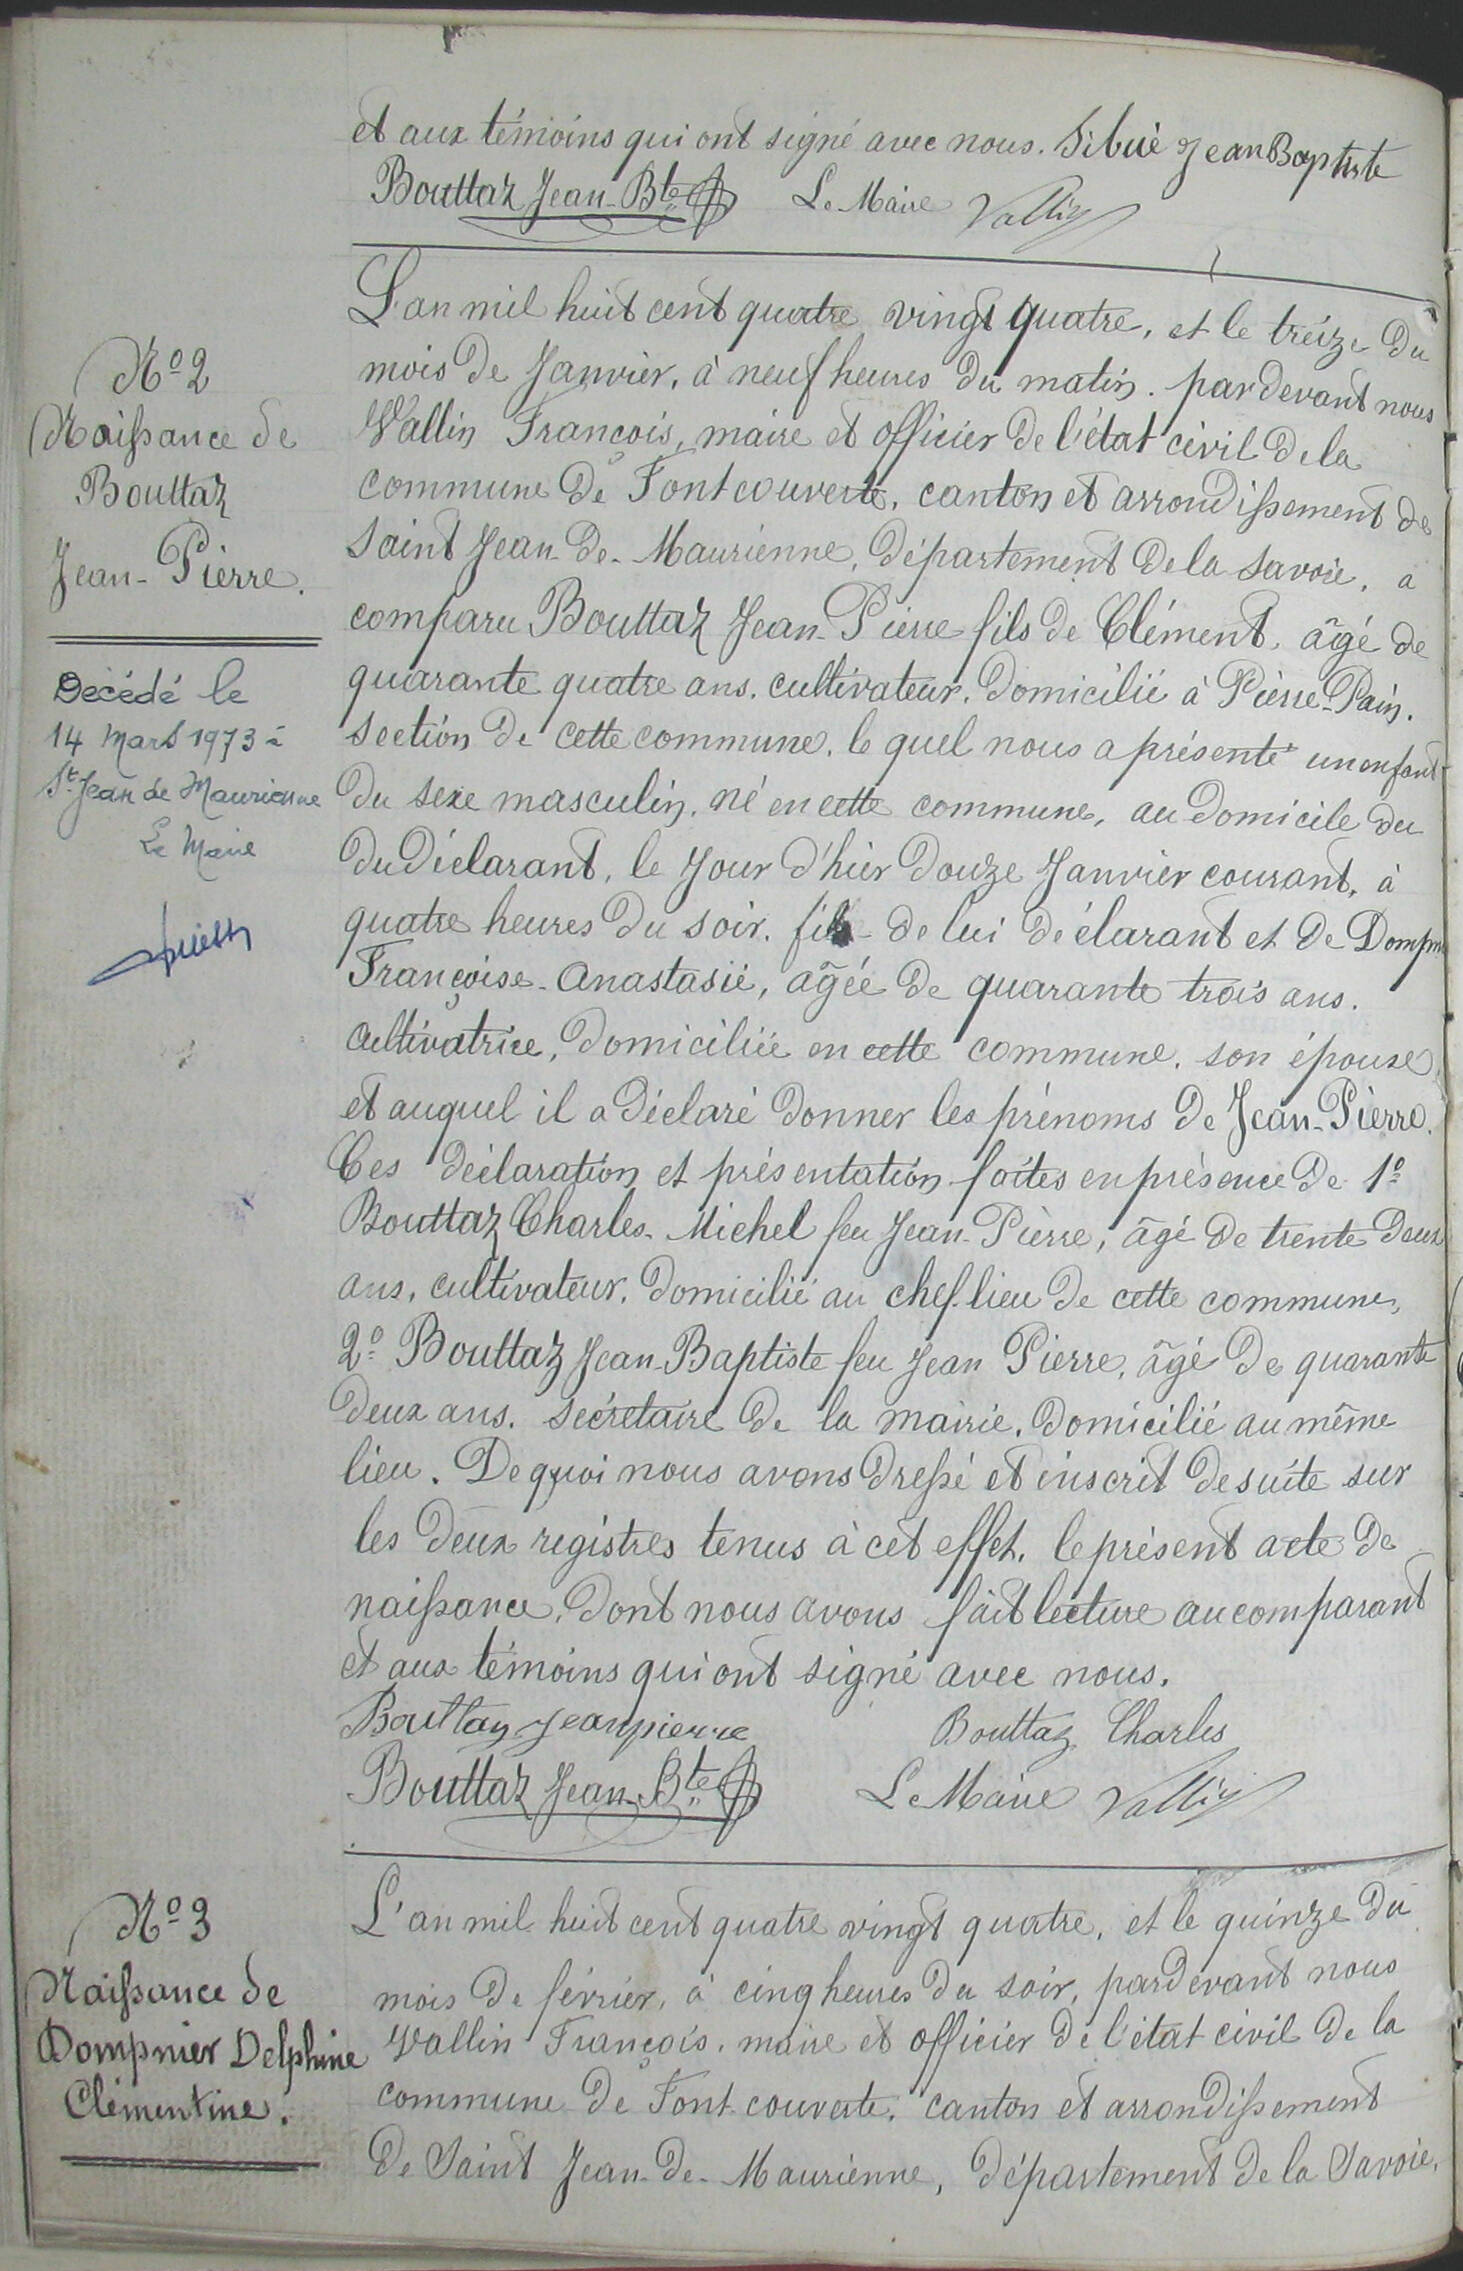 et aux témoins qui ont signé avec nous. Sibué Jean Baptiste
Bouttaz Jean-Bte Le Maire Vallin
L'an mil huit cent quatre vingt quatre, et le treize du
mois de Janvier, à neuf heures du matin. pardevant nous
Vallin François, maire et officier de l'état civil de la
commune de Fontcouverte, canton et arrondissement de
Saint Jean-de-Maurienne, département de la Savoie, a
comparu Bouttaz Jean-Pierre fils de Clément, âgé de
quarante quatre ans, cultivateur, domicilié à Pierre-Pain,
section de cette commune, le quel nous a présenté un enfant
du sexe masculin, né en cette commune, au domicile du
du déclarant, le jour d'hier douze Janvier courant, à
quatre heures du soir, fils de lui déclarant et de Dompnier
Françoise-Anastasie, âgée de quarante trois ans,
cultivatrice, domiciliée en cette commune, son épouse,
et auquel il a déclaré donner les prénoms de Jean-Pierre.
Ces déclaration et présentation faites en présence de 1º
Bouttaz Charles-Michel feu Jean-Pierre, âgé de trente deux
ans, cultivateur, domicilié au chef-lieu de cette commune,
2º Bouttaz Jean-Baptiste feu Jean Pierre, âgé de quarante
deux ans, secrétaire de la mairie, domicilié au même
lieu. De quoi nous avons dressé et inscrit de suite sur
les deux registres tenus à cet effet, le présent acte de
naissance, dont nous avons fait lecture au comparant
et aux témoins qui ont signé avec nous.
Bouttaz Jean pierre Bouttaz Charles
Bouttaz Jean-Bte Le Maire Vallin
L'an mil huit cent quatre vingt quatre, et le quinze du
mois de février, à cinq heures du soir, pardevant nous
Vallin François, maire et officier de l'état civil de la
commune de Font-couverte, canton et arrondissement
de Saint Jean-de-Maurienne, département de la Savoie,
Nº 2
Naissance de
Bouttaz
Jean-Pierre.
Décédé le
14 Mars 1973 à
St Jean de Maurienne
Le Maire
Nº 3
Naissance de
Dompnier Delphine
Clémentine.